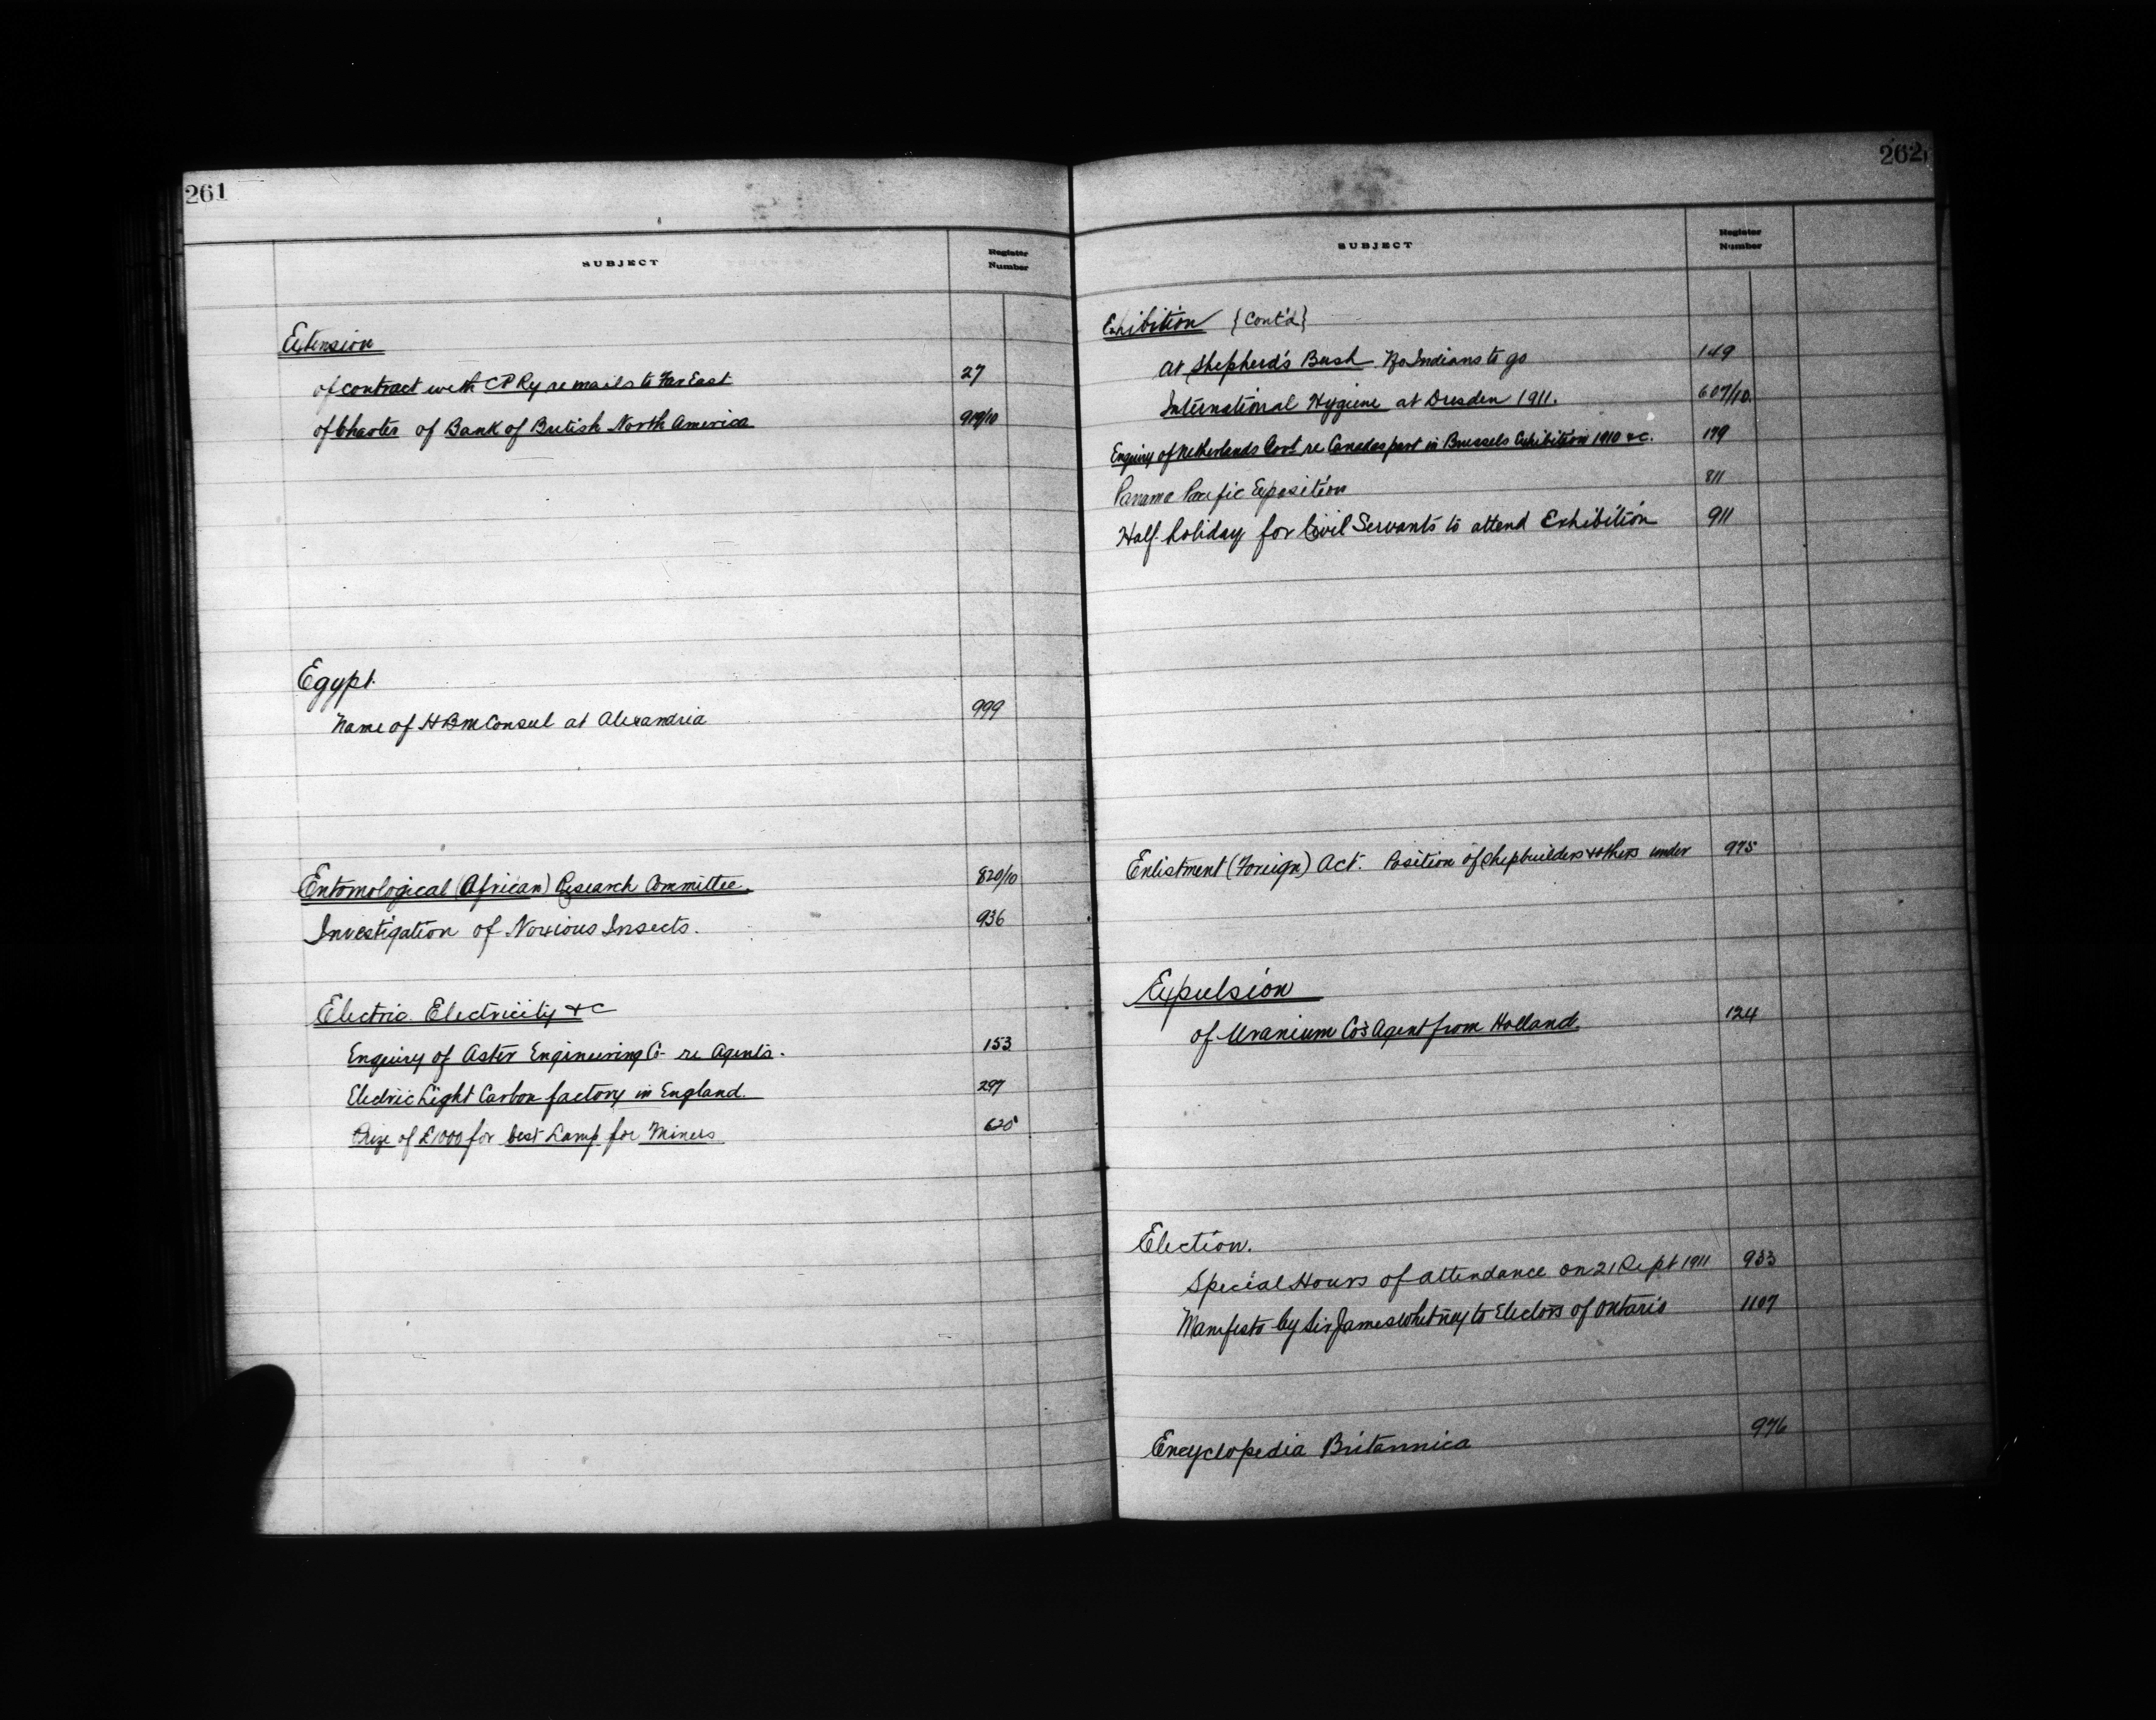 261
SUBJECT
Register
Number
Extension
of contract with CP Ry re mails to Far East 27
of Charter of Bank of British North America 919/10
Egypt.
Name of HBM Consul at Alexandria 999
Entomological (African) Research Committee. 820/10
Investigation of Noxious Insects. 936
Electric Electricity &c
Enquiry of Aster Engineering Co re Agents. 153
Electric Light Carbon factory in England. 297
Prize of £1000 for best Lamp for Miners 625
262
SUBJECT
Register
Number
Exhibition {Cont'd}
at Shepherd's Bush No Indians to go 149
International Hygiene at Dresden 1911. 607/10.
Enquiry of Netherlands Govt re Canadas part in Brussels Exhibition 1910 &c. 179
Panama Pacific Exposition 811
Half-holiday for Civil Servants to attend Exhibition 911
Enlistment (Foreign) Act. Position of shipbuilders & others under 975
Expulsion
of Uranium Co's Agent from Holland. 124
Election.
Special Hours of attendance on 21 Sept 1911 933
Manifesto by Sir James Whitney to Electors of Ontario 1107
Encyclopedia Britannica 976